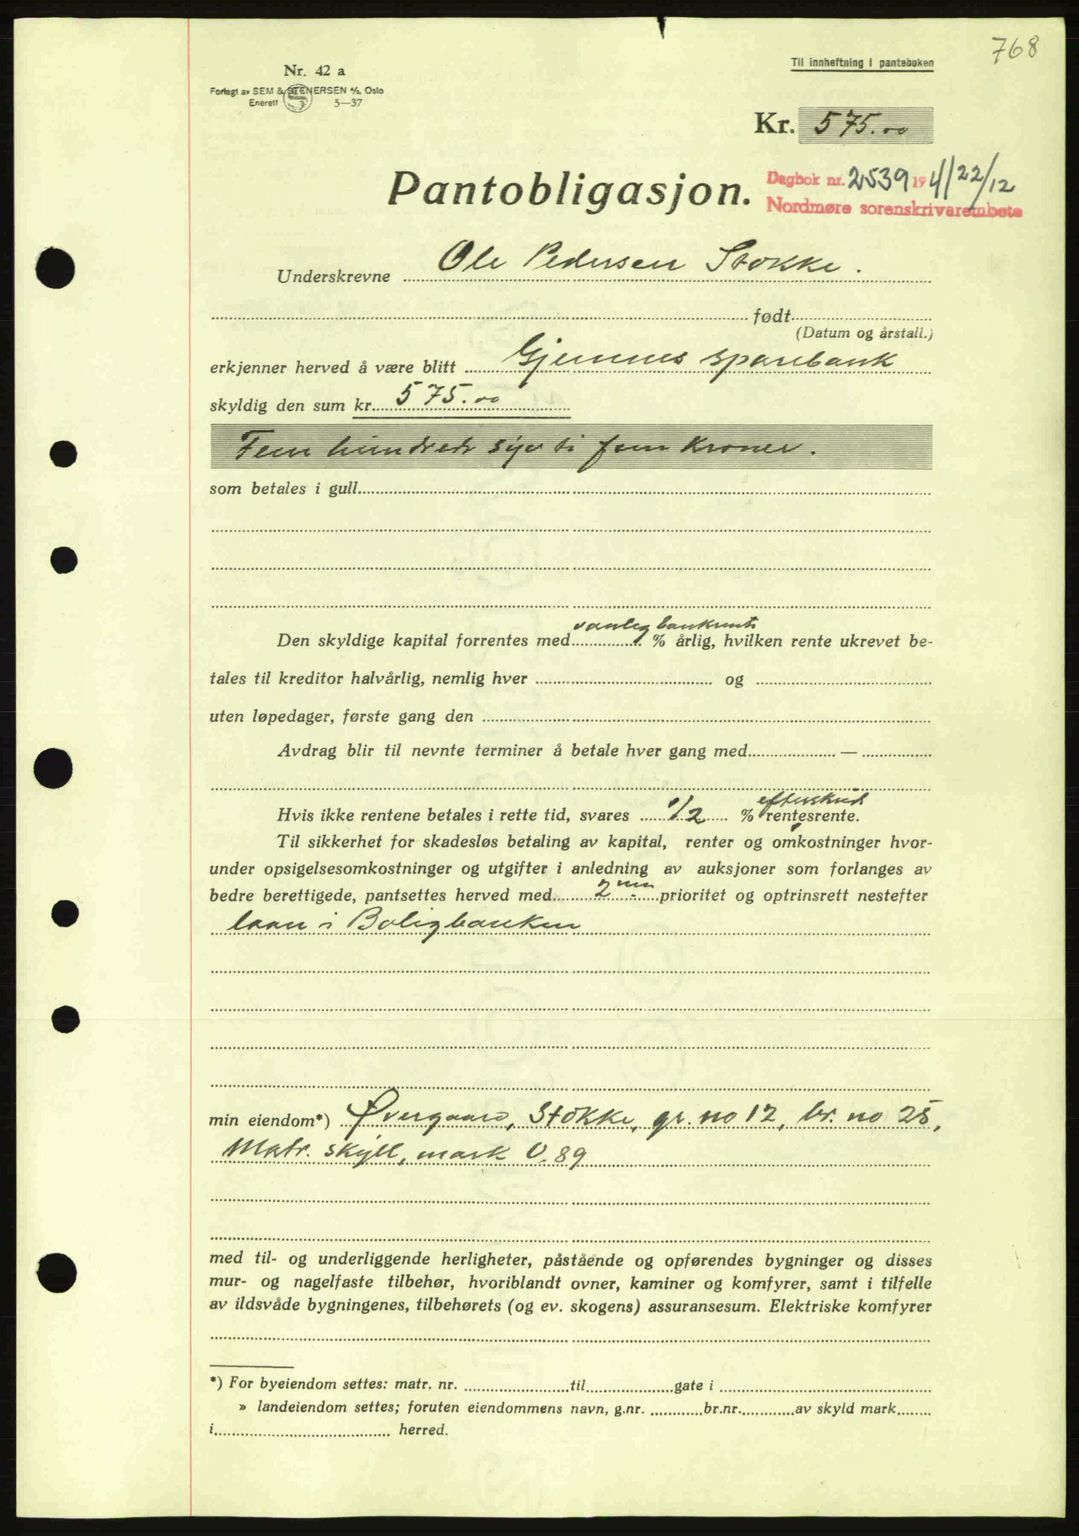 768
Til innheftning i panteboken
Nr. 42 a
Forlagt av SEM & STENERSEN A/S, Oslo
Enerett 5—37
Kr. 575.00
Pantobligasjon.
Dagbok nr. 2539 194 / 22/12
Nordmøre sorenskrivarembete
Underskrevne Ole Pedersen Stokke.
født
(Datum og årstall.)
erkjenner herved å være blitt Gjemnes sparebank
skyldig den sum kr. 575.00
Fem hundrede syv ti fem kroner.
som betales i gull
vanlig bankrente
Den skyldige kapital forrentes med % årlig, hvilken rente ukrevet be-
tales til kreditor halvårlig, nemlig hver og
uten løpedager, første gang den
Avdrag blir til nevnte terminer å betale hver gang med —
efterskud
Hvis ikke rentene betales i rette tid, svares 1/2 % rentesrente.
Til sikkerhet for skadesløs betaling av kapital, renter og omkostninger hvor-
under opsigelsesomkostninger og utgifter i anledning av auksjoner som forlanges av
bedre berettigede, pantsettes herved med 2nen prioritet og optrinsrett nestefter
laan i Boligbanken
min eiendom*) Øvergaard, Stokke, gr. no 12, br. no 25,
Matr. skyll, mark 0.89
med til- og underliggende herligheter, påstående og opførendes bygninger og disses
mur- og nagelfaste tilbehør, hvoriblandt ovner, kaminer og komfyrer, samt i tilfelle
av ildsvåde bygningenes, tilbehørets (og ev. skogens) assuransesum. Elektriske komfyrer
*) For byeiendom settes: matr. nr. til gate i
» landeiendom settes; foruten eiendommens navn, g.nr. br.nr. av skyld mark
i herred.